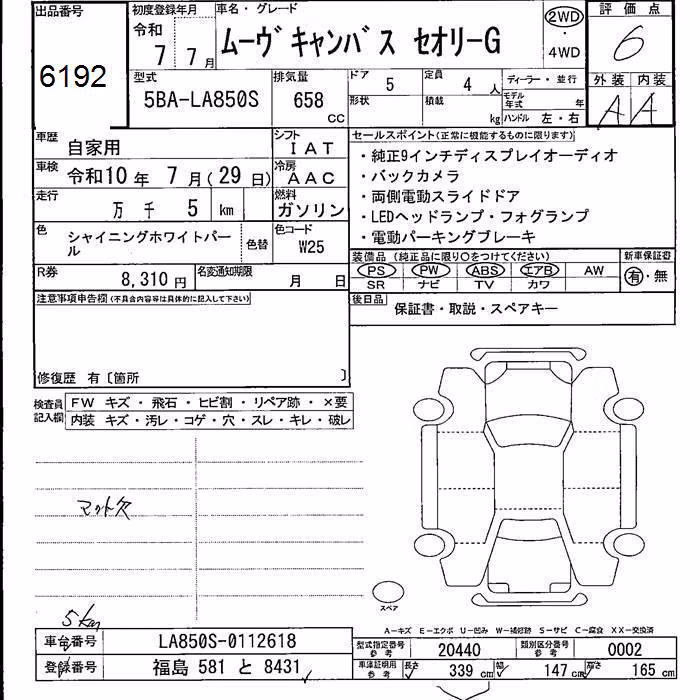 出品番号
6192
初度登録年月
令和
7 7月
車名・グレード
ムーヴキャンバス セオリーG
2WD
・
4WD
評価点
6
型式
5BA-LA850S
排気量
658
CC
ドア 5
定員 4 人
形状
積載 kg
ディーラー・並行
モデル年式 年
ハンドル 左・右
外装 内装
A A
車歴
自家用
シフト
IAT
車検
令和10年 7月(29日)
冷房
AAC
走行
万 千 5 km
燃料
ガソリン
色
シャイニングホワイトパール
色替
色コード
W25
R券
8,310円
名変通知期限
月 日
セールスポイント(正常に機能するものに限ります)
・純正9インチディスプレイオーディオ
・バックカメラ
・両側電動スライドドア
・LEDヘッドランプ・フォグランプ
・電動パーキングブレーキ
装備品(純正品に限り○をつけてください)
PS PW ABS エアB AW
SR ナビ TV カワ
新車保証書
有・無
後日品
保証書・取説・スペアキー
注意事項申告欄(不具合内容等は具体的に記入して下さい)
修復歴 有〔箇所 〕
検査員記入欄
FW キズ・飛石・ヒビ割・リペア跡・×要
内装 キズ・汚レ・コゲ・穴・スレ・キレ・破レ
マット欠
スペア
5km
A-キズ E-エクボ U-凹み W-補修跡 S-サビ C-腐食 XX-交換済
車台番号
LA850S-0112618
登録番号
福島 581 と 8431
型式指定番号
参考
20440
類別区分番号
参考
0002
車庫証明用
参考
長さ 339 cm
幅 147 cm
高さ 165 cm